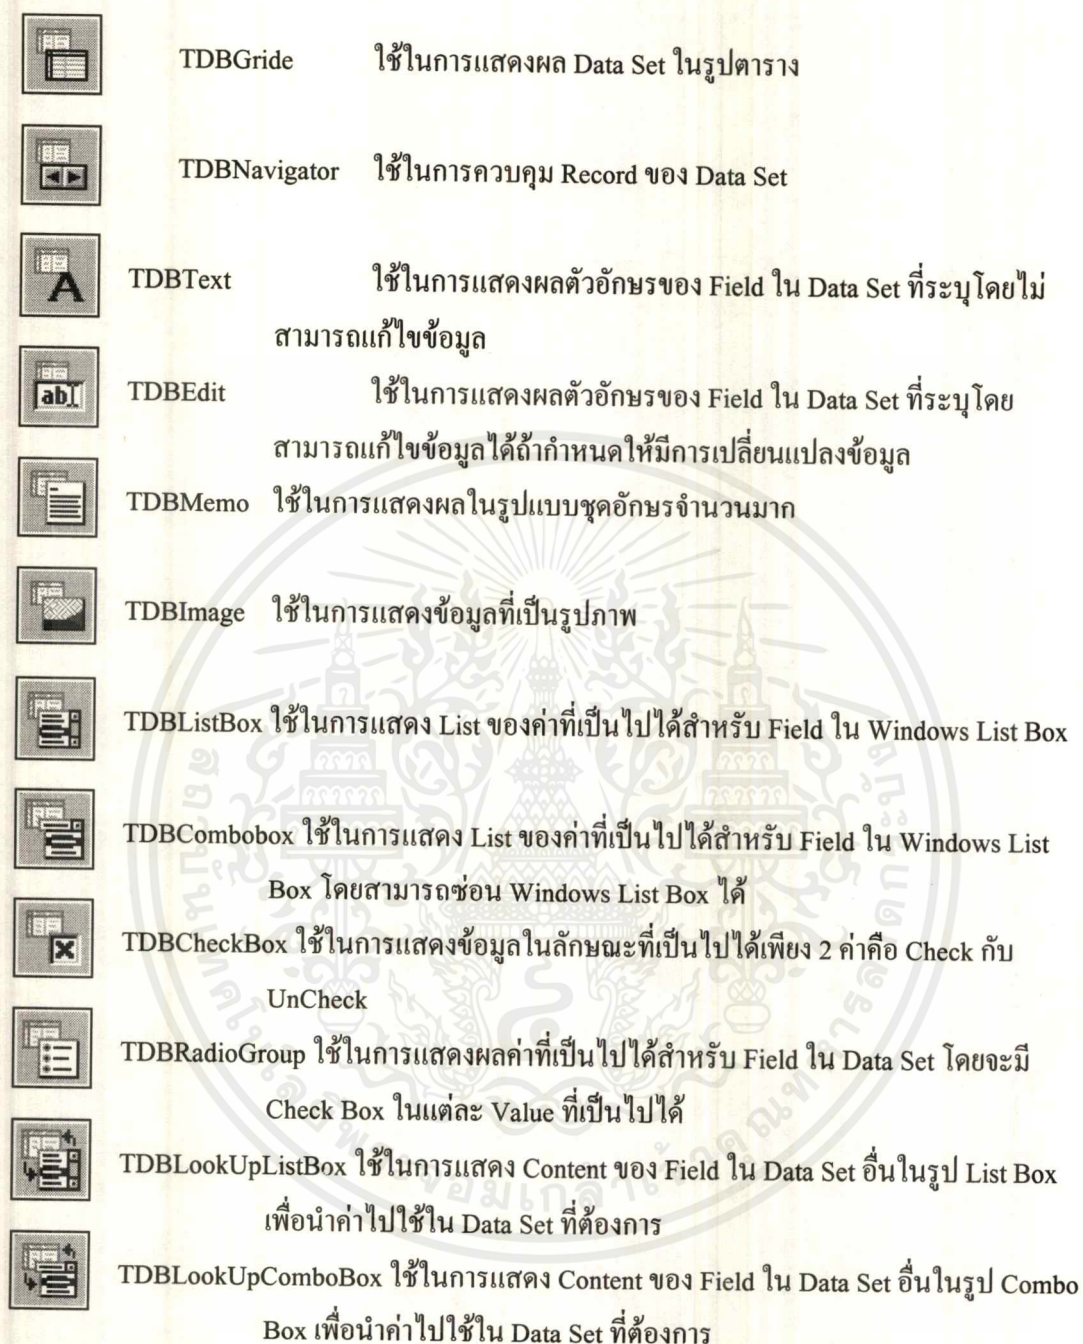 TDBGride ใช้ในการแสดงผล Data Set ในรูปตาราง
TDBNavigator ใช้ในการควบคุม Record ของ Data Set
TDBText ใช้ในการแสดงผลตัวอักษรของ Field ใน Data Set ที่ระบุโดยไม่
สามารถแก้ไขข้อมูล
TDBEdit ใช้ในการแสดงผลตัวอักษรของ Field ใน Data Set ที่ระบุโดย
สามารถแก้ไขข้อมูลได้ถ้ากำหนดให้มีการเปลี่ยนแปลงข้อมูล
TDBMemo ใช้ในการแสดงผลในรูปแบบชุดอักษรจำนวนมาก
TDBImage ใช้ในการแสดงข้อมูลที่เป็นรูปภาพ
TDBListBox ใช้ในการแสดง List ของค่าที่เป็นไปได้สำหรับ Field ใน Windows List Box
TDBCombobox ใช้ในการแสดง List ของค่าที่เป็นไปได้สำหรับ Field ใน Windows List
Box โดยสามารถซ่อน Windows List Box ได้
TDBCheckBox ใช้ในการแสดงข้อมูลในลักษณะที่เป็นไปได้เพียง 2 ค่าคือ Check กับ
UnCheck
TDBRadioGroup ใช้ในการแสดงผลค่าที่เป็นไปได้สำหรับ Field ใน Data Set โดยจะมี
Check Box ในแต่ละ Value ที่เป็นไปได้
TDBLookUpListBox ใช้ในการแสดง Content ของ Field ใน Data Set อื่นในรูป List Box
เพื่อนำค่าไปใช้ใน Data Set ที่ต้องการ
TDBLookUpComboBox ใช้ในการแสดง Content ของ Field ใน Data Set อื่นในรูป Combo
Box เพื่อนำค่าไปใช้ใน Data Set ที่ต้องการ
สถาบันเทคโนโลยีพระจอมเกล้าเจ้าคุณทหารลาดกระบัง